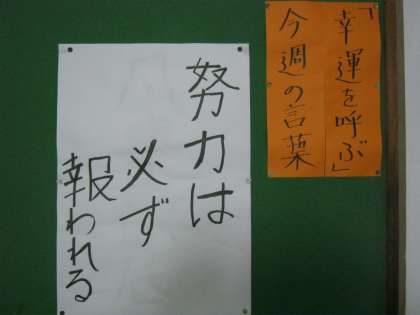 「幸運を呼ぶ」
今週の言葉
努力は
必ず
報われる